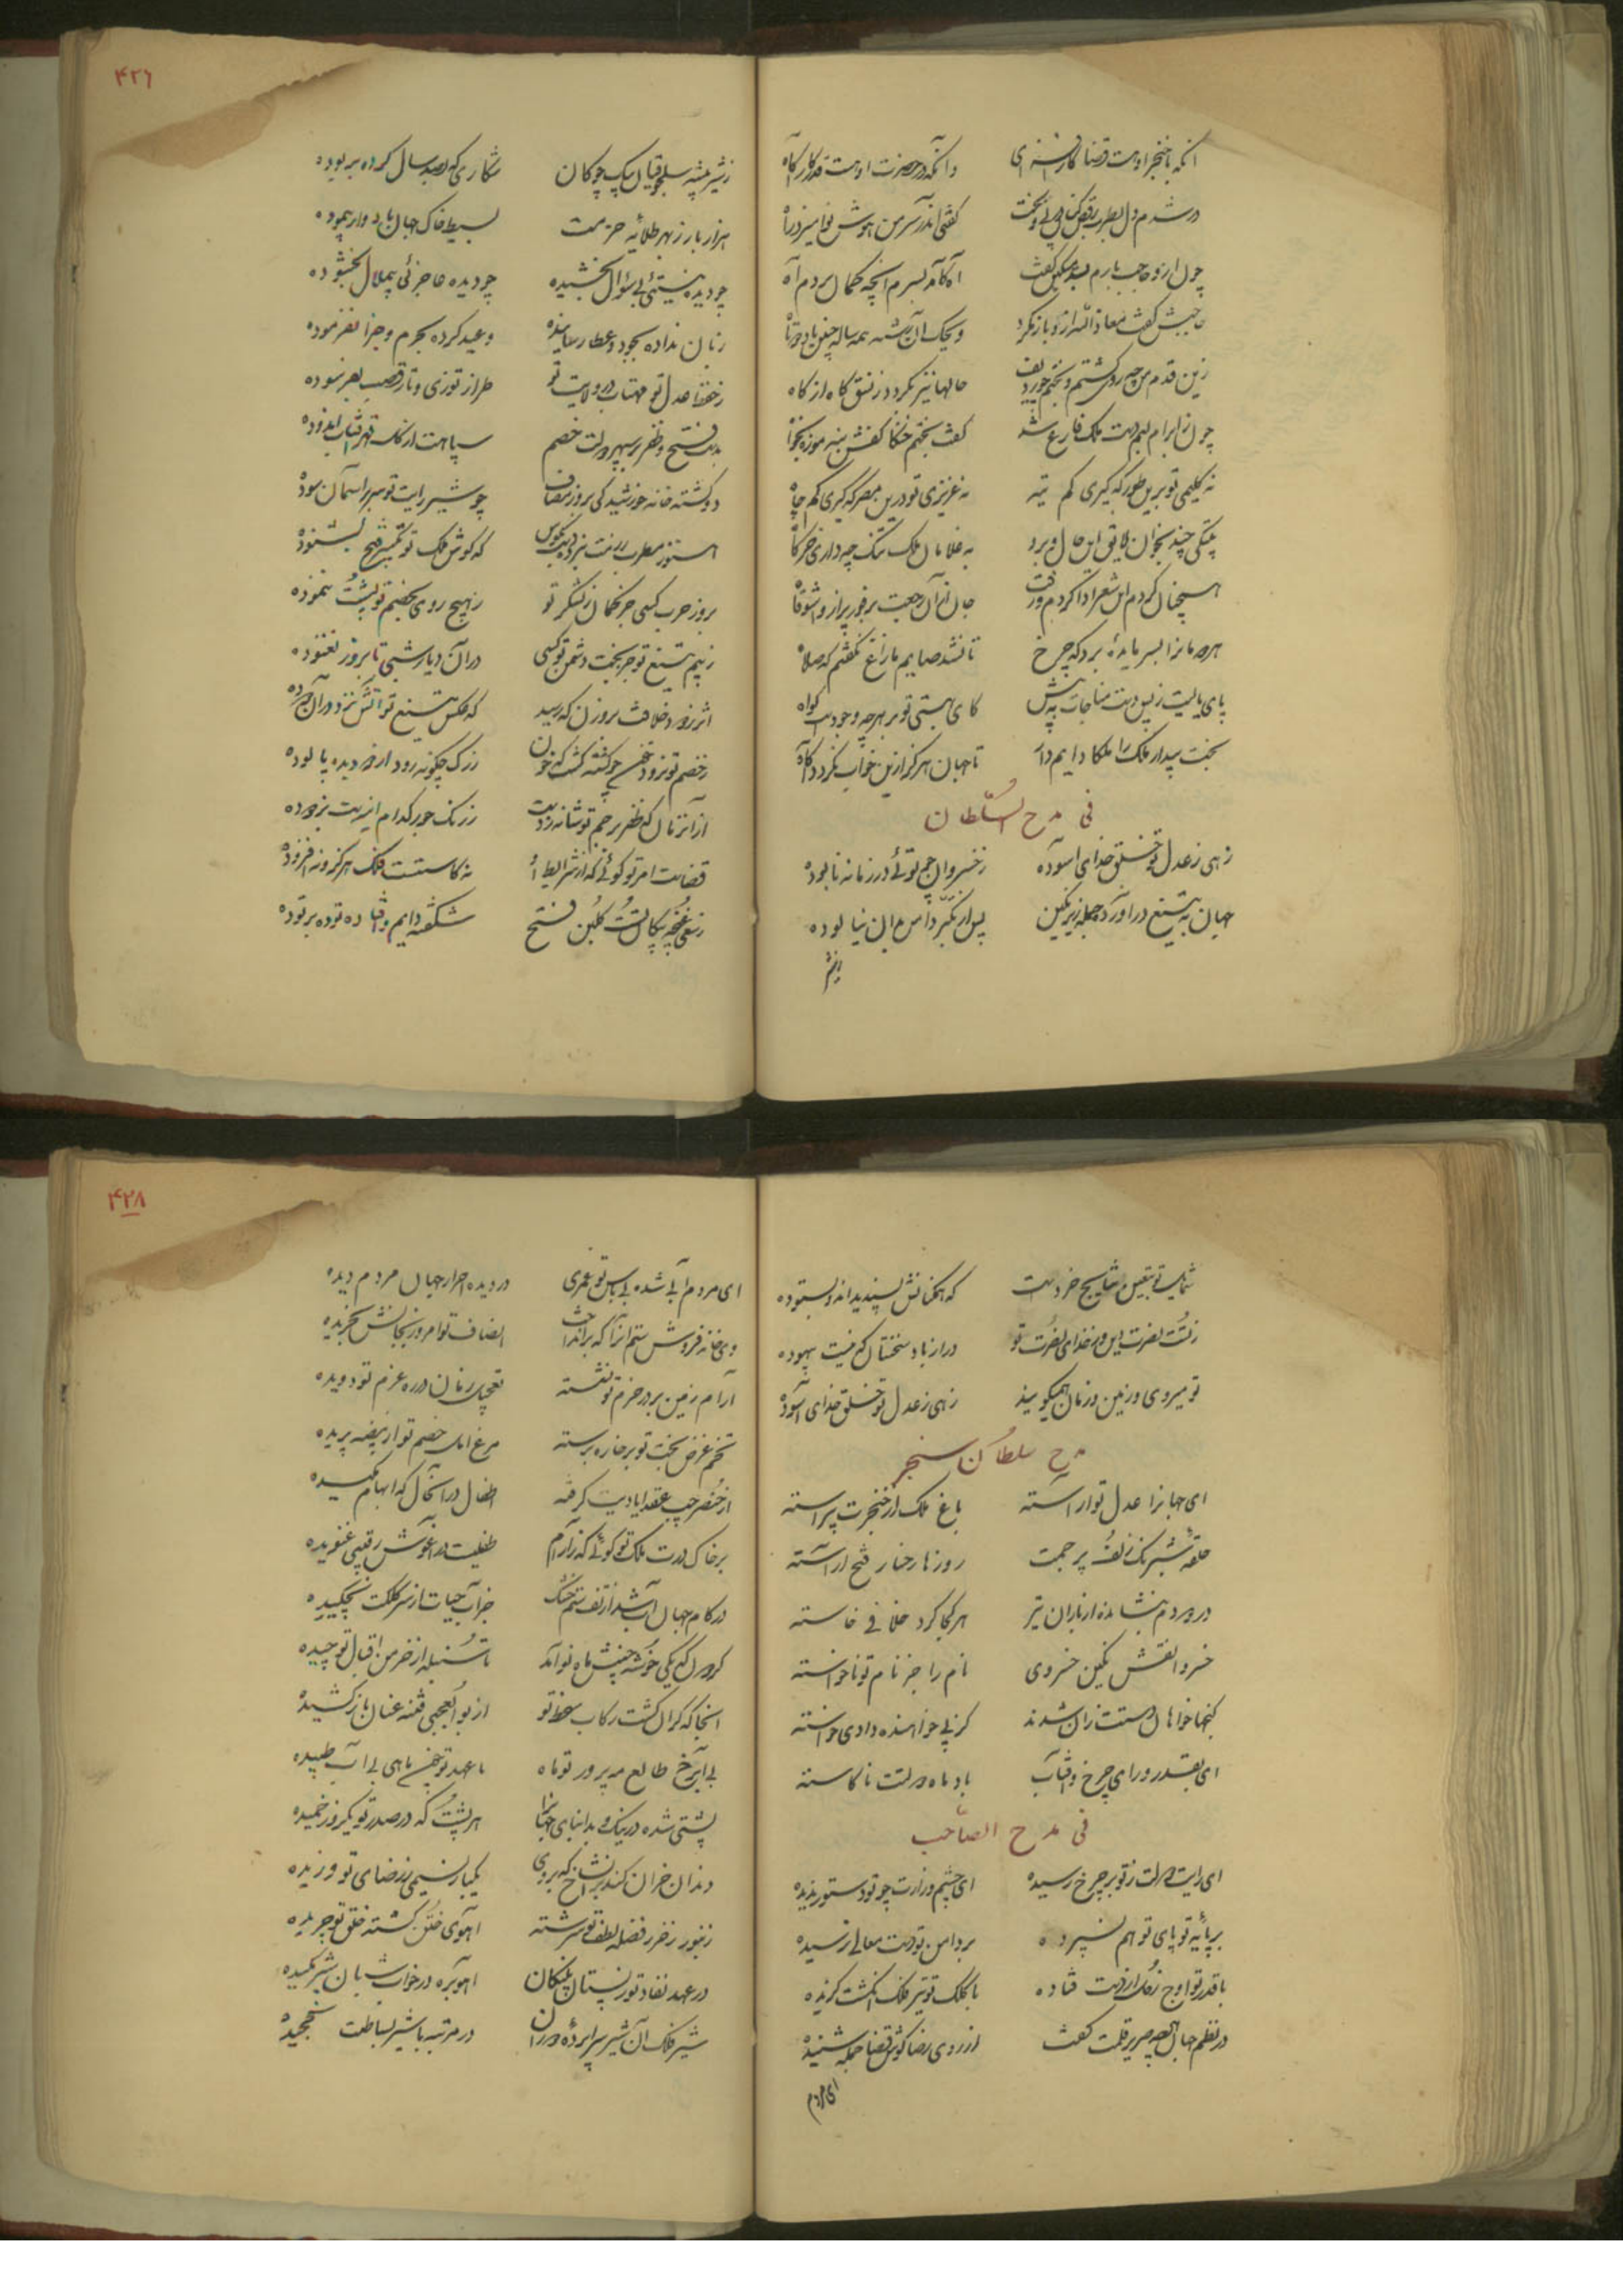 ۴۲۶
انکه با خنجر او هست قضا کارفزای وانکه در حضرت او هست قدر کارآکاه
در شدم دل بطرب رقص کنان پی بخت کفتی اندر سر من هوش نوا میزد راه
چون ازو حاجب بارم بستد کفت آه کآمد بسرم انچه کمال مردم آه
حاجبش کفت معاذ الله ازو باز نکرد
زین قدم من چه روی کشتم و بختم حالها نیز نکردد ز نسق کاه از کاه
چون ز ابرام لبم دست ملک فارغ شد کفت بختم خنکا کفش بنه موزه بخواه
نه کلیمی تو برین طور که کیری کم تیه نه عزیزی تو درین مصر که کیری کم چاه
بیتکی چند بخوان لایق این حال و برو به غلامان ملک تنک چه داری خرکاه
همچنان کردم این شعر ادا کردم و رفت جان از آن
هر صله مانرا بسر مایده برد که چرخ تا نشد صایم ما را نکفتم که صلاه
پای بالیت زمین دست مناجات به پیش کای بهستی تو بر هر چه وجودست کواه
بخت بیدار ملک را ملکا دایم دار تا جهان هرکز ازین خواب نکردد آکاه
فی مدح السلطان
زهی ز عدل تو خلق خدای آسوده ز خسروان چو توئی در زمانه نابوده
جهان به تیغ درآورده جمله زیر نکین پس از تکبر دامن بدان نیالوده
ز شیر بیشه سلجوقیان بیک جولان شکاری که بصد سال کرده بربوده
هزار بار ز بهر طلایه حزمت بسیط خاک جهان باد وار پیموده
چو دیده نیستئی بی سؤال بخشیده چو دیده عاجزئی بی ملال بخشوده
زبان نداده بجود و عطا رسانیده وعید کرده بجرم و جزا نفرموده
ز حفظ عدل تو مهتاب در ولایت تو طراز توزی و تار قصب نفرسوده
بدست فتح و ظفر بر سپهر دولت خصم سپاهت از کاسه قهر آفتاب اندوده
دو کشته خانه خورشید کی بروز مصاف چو شیر رایت تو سر بر آسمان سوده
هنوز مطرب رزمت نزد بیک که کوش ملک تو تکبیر فتح بشنوده
بروز حرب کسی جز کمان ز لشکر تو ز هیچ روی بخصم تو پشت ننموده
ز بیم تیغ تو جز بخت دشمن تو کسی در آن دیار شبی تا بروز نغنوده
اثر ز دود خلافت بروزن که رسید که عکس تیغ تو آتش نزد در آن دوده
ز خصم تو نرود خون چو کشته کشت که خون ز رک چکونه رود از دو دیده پالوده
از آن زمان که ظفر پرچم تو شانه زدست ز زنک جور کدام اینه‌ست نزدوده
قضاست امر تو کوئی که از شرایط او نه کاستست فلک هرکز و نه افزوده
زهی ز غنچه پیکانت کلبن فتح شکفته دایم و فتاده توده بر توده
۴۲۸
ثنای تو بیقین نتایج خردست که همکنانش پسندیده‌اند و بستوده
ز تست نصرت دین و ز خدای نصرت تو دراز باد سخنشان که نیست بیهوده
تو میروی و زمین و زمان همیکویند زهی ز عدل تو خلق خدای آسوده
مدح سلطان سنجر
ای جهانرا عدل تو آراسته باغ ملک از خنجرت پیراسته
حلقه شبرنک زلف پرچمت روزها رخسار فتح آراسته
در دم ننشانده از باران تیر هر کجا کرد خلافی خاسته
خسروا نقش نکین خسروی نام را جز نام تو ناخواسته
کنجها خواهان دستت زان شدند کز پی خواهنده دادی خواسته
ای بقدر و رای چرخ و آفتاب باد ماه دولتت ناکاسته
فی مدح الصاحب
ای رایت دولت ز تو بر چرخ رسیده ای چشم وزارت چو تو دستور ندیده
بر پایه تو پای توهم نسپرده بر دامن تو دست معالی نرسیده
با قدر تو اوج زحل از دست فتاده با کلک تو تیر فلک انکشت کزیده
در نظم جهان هر چه صریر قلمت کفت از روی رضا کوش قضا جمله شنیده
ای مردم
ای مردم آبی شده بی پاس تو عمری در دیده احرار جهان مردم دیده
وی خانه فروش ستم آنرا که برانداخت انصاف تو امروز بجانش بخریده
آرام زمین بر در حزم تو نشسته تعجیل زمان در ره عزم تو دویده
تخم غرض بخت تو بر خاره برسته مرغ امل خصم تو از بیضه پریده
از خنصر چپ عقد ایادیت کرفته اطفال در آنحال که ابهام مکیده
بر خاک درت ملک تو کوئی که ز آرام طفلیست در آغوش رقیبی غنویده
در کام جهان آب شد از تف ستم خشک جز آب حیات از سر کلکت نچکیده
کردون که یکی خوشه چنیش ماه نو آمد تا سنبله از خرمن اقبال تو چیده
آنجا که کران کشت رکاب سخط تو از بوالعجبی فتنه عنان باز کشیده
بی آب رخ طالع مه پرور تو ماه با عهد تو چون ماهی بی آب طپیده
پشتی شده در نیک و بد ابنای جهانرا هر پشت که در صدر تو یکروز خمیده
دندان خزان کند بر آن شاخ که بر وی یکبار نسیمی ز رضای تو وزیده
زنبور ز خرزفضله لطف تو سرشته آهوی ختن کشته خلق تو چریده
در عهد نفاذ تو ز پستان پلنکان آهو بره در خواب شبان شیر مکیده
شیر فلک آن شیر سراپرده دوران در مرتبه با شیر بساطت نچخیده